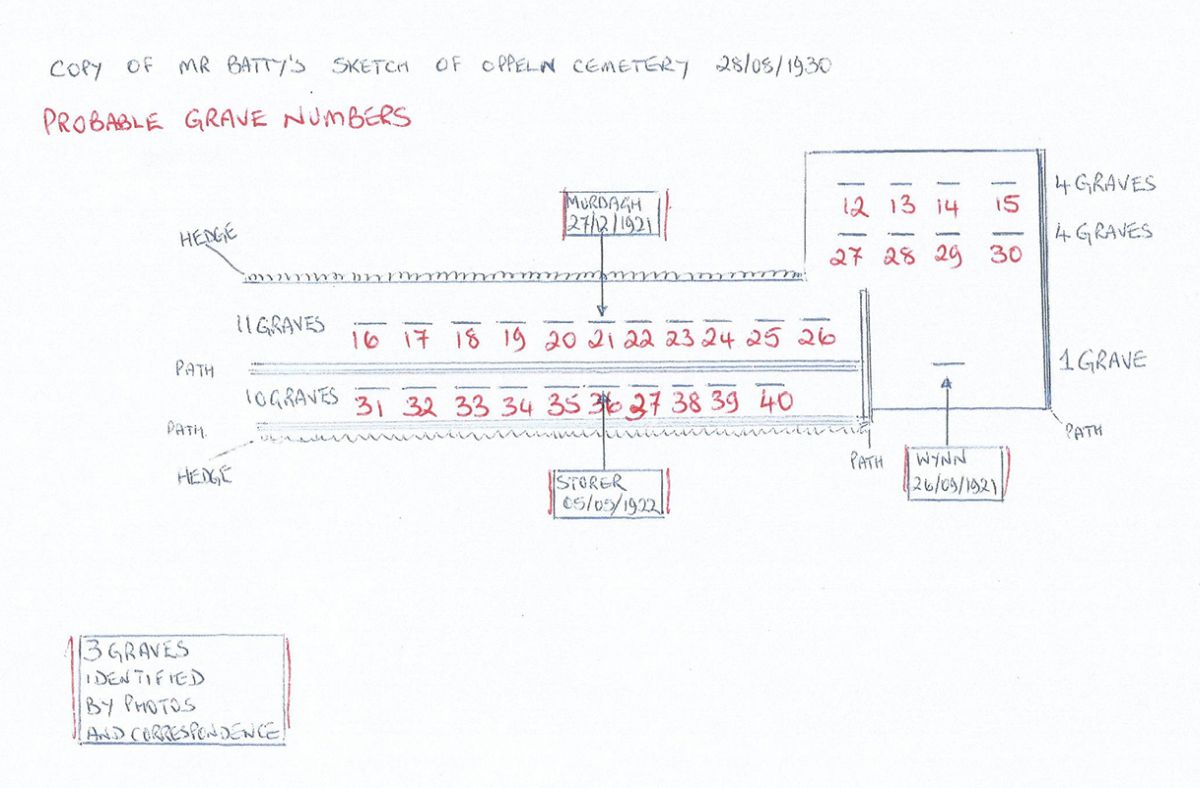 COPY OF MR BATTY'S SKETCH OF OPPELN CEMETERY 28/08/1930
PROBABLE GRAVE NUMBERS
MURDAGH
27/12/1921
4 GRAVES
12 13 14 15
4 GRAVES
27 28 29 30
HEDGE
11 GRAVES 16 17 18 19 20 21 22 23 24 25 26
PATH
1 GRAVE
10 GRAVES 31 32 33 34 35 36 27 38 39 40
PATH
HEDGE
PATH
PATH
WYNN
26/09/1921
STORER
05/05/1922
3 GRAVES
IDENTIFIED
BY PHOTOS
AND CORRESPONDENCE